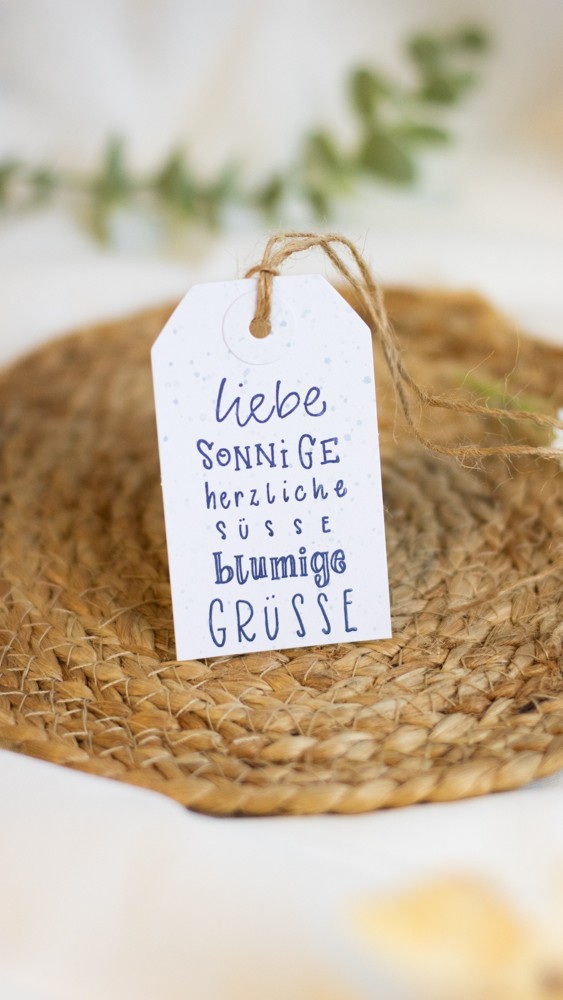 liebe
SONNiGE
herzliche
SÜSSE
blumige
GRÜSSE